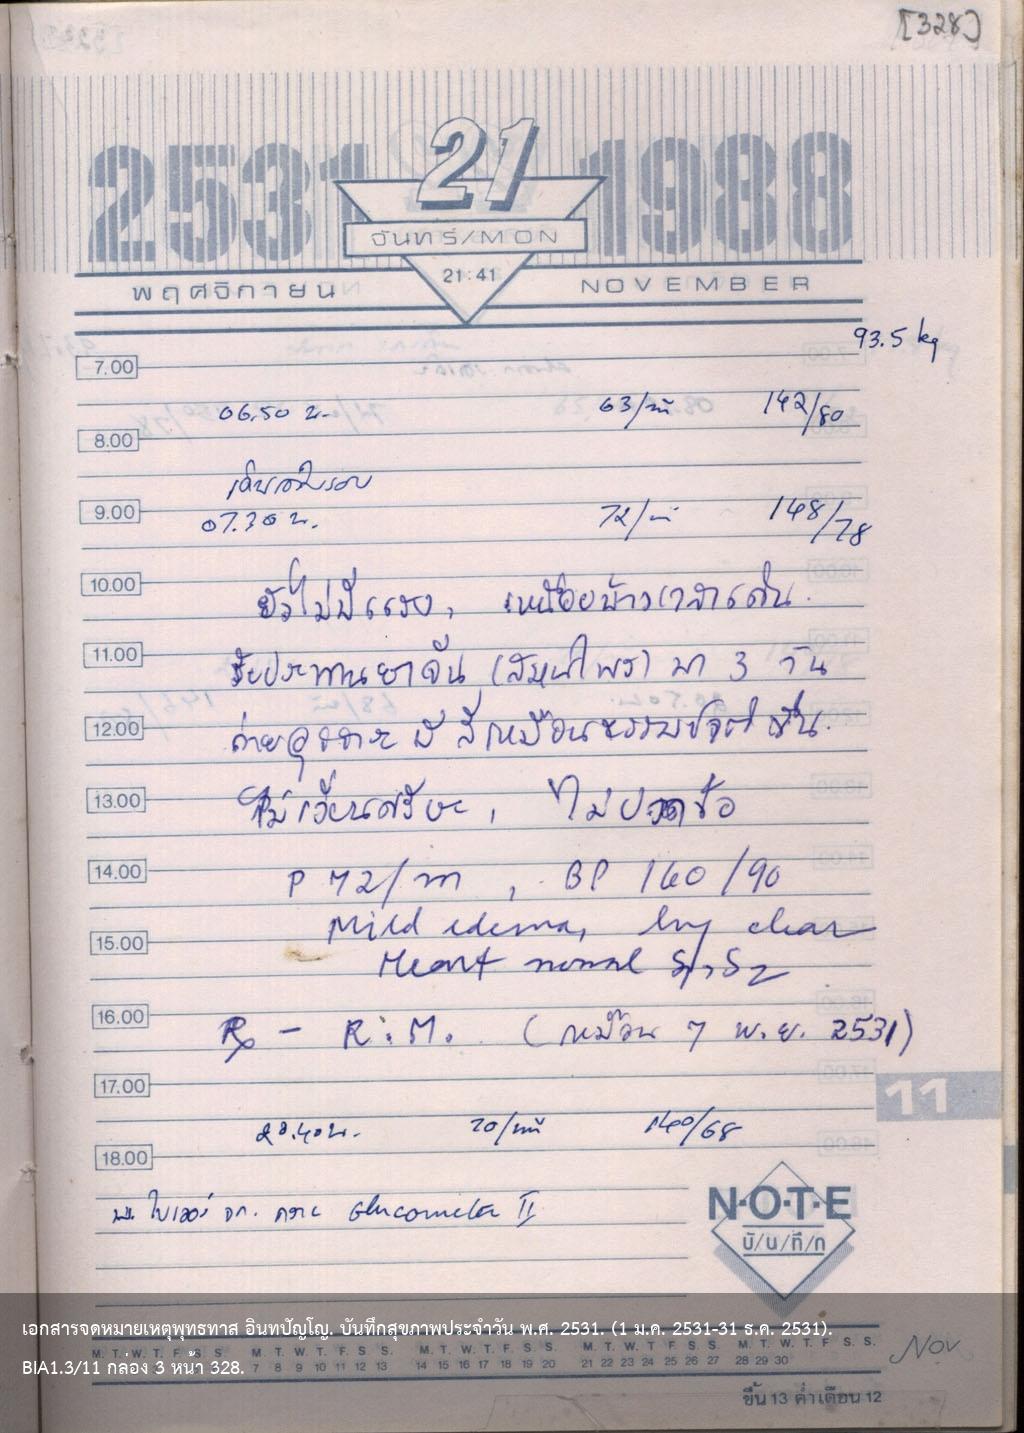 [328]
2531 21 1988
จันทร์/MON
21:41
พฤศจิกายน NOVEMBER
93.5 kg
7.00
06.50 น. 63/นาที 142/80
8.00
เดินรอบ
9.00
07.30 น. 72/นาที 148/78
10.00
ยังไม่มีแรง, เหนื่อยบ้างเวลาเดิน.
11.00
รับประทานยาจีน (สมุนไพร) มา 3 วัน
12.00
ถ่ายอุจจาระ มีสีเหมือนธรรมชาติขึ้น.
13.00
ไม่เวียนศรีษะ, ไม่ปวดข้อ
14.00
P 72/m, BP 160/90
Mild edema, lung clear
15.00
Heart normal S1, S2
16.00
Rx - R.M. (เหมือน 7 พ.ย. 2531)
17.00
11
20.40 น. 70/นาที 140/68
18.00
Glucometer II
N·O·T·E
บั/น/ทึ/ก
เอกสารจดหมายเหตุพุทธทาส อินทปัญโญ. บันทึกสุขภาพประจำวัน พ.ศ. 2531. (1 ม.ค. 2531-31 ธ.ค. 2531).
M. T. W. T. F. S. S. M. T. W. T. F. S. S. M. T. W. T. F. S. S. M. T. W. T. F. S. S. M. T. W. T. F. S. S.
BIA1.3/11 กล่อง 3 หน้า 328. 7 8 9 10 11 12 13 14 15 16 17 18 19 20 21 22 23 24 25 26 27 28 29 30
Nov
ขึ้น 13 ค่ำ เดือน 12